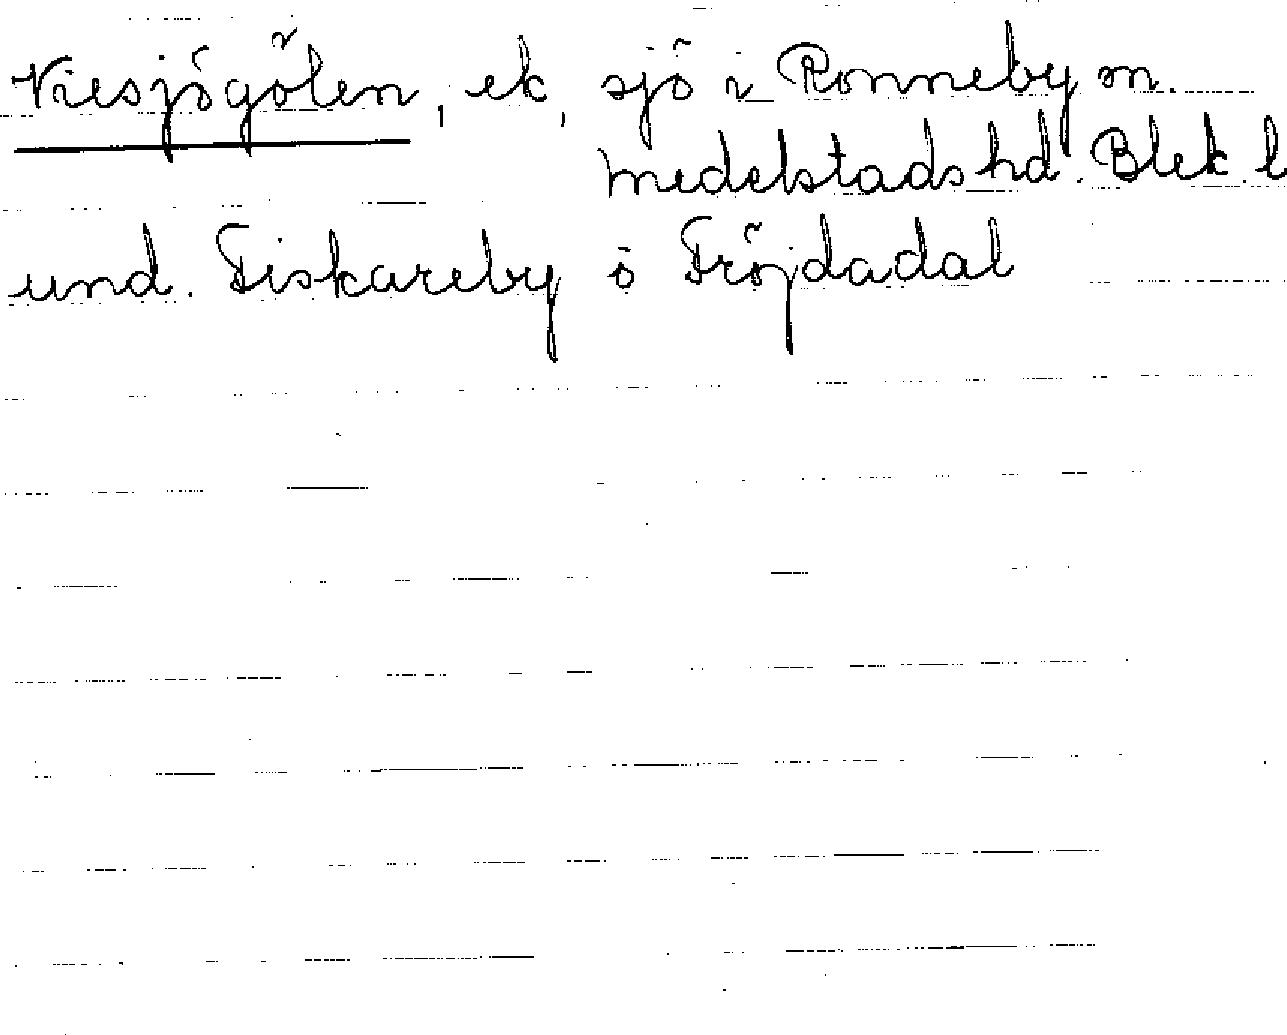 Viesjögölen, ek, sjö i Ronneby sn.
Medelstads hd. Blek. l
und. Fiskareby ö Fröjdadal